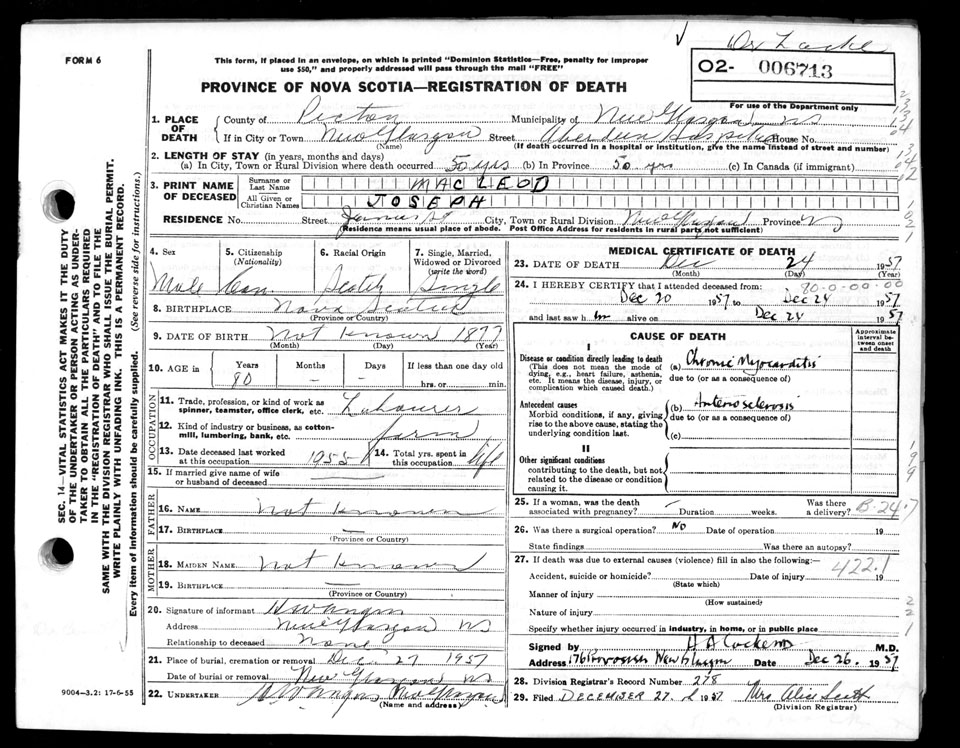 FORM 6
This form, if placed in an envelope, on which is printed "Dominion Statistics—Free, penalty for improper
use $50," and properly addressed will pass through the mail "FREE"
Dr
02- 006713
For use of the Department only
PROVINCE OF NOVA SCOTIA—REGISTRATION OF DEATH
1. PLACE OF DEATH
County of Pictou Municipality of New Glasgow NS
If in City or Town New Glasgow Street Aberdeen Hospital House No.
(Name) (If death occurred in a hospital or institution, give the name instead of street and number)
2. LENGTH OF STAY (in years, months and days)
(a) In City, Town or Rural Division where death occurred 50 yrs (b) In Province 50 yrs (c) In Canada (if immigrant)
3. PRINT NAME OF DECEASED
Surname or Last Name MACLEOD
All Given or Christian Names JOSEPH
RESIDENCE No. Street James St City, Town or Rural Division New Glasgow Province
(Residence means usual place of abode. Post Office Address for residents in rural parts not sufficient)
4. Sex
Male
5. Citizenship (Nationality)
Can.
6. Racial Origin
Scotch
7. Single, Married, Widowed or Divorced (write the word)
Single
8. BIRTHPLACE Nova Scotia
(Province or Country)
9. DATE OF BIRTH Not Known 1877
(Month) (Day) (Year)
10. AGE in
Years Months Days If less than one day old
80 — — hrs. or min.
OCCUPATION
11. Trade, profession, or kind of work as spinner, teamster, office clerk, etc. Labourer
12. Kind of industry or business, as cotton-mill, lumbering, bank, etc. farm
13. Date deceased last worked at this occupation 1955
14. Total yrs. spent in this occupation life
15. If married give name of wife or husband of deceased —
FATHER
16. NAME Not Known
17. BIRTHPLACE —
(Province or Country)
MOTHER
18. MAIDEN NAME Not Known
19. BIRTHPLACE —
(Province or Country)
20. Signature of informant
Address New Glasgow NS
Relationship to deceased None
21. Place of burial, cremation or removal Dec 27 1957
Date of burial or removal New Glasgow NS
22. UNDERTAKER New Glasgow
(Name and address)
MEDICAL CERTIFICATE OF DEATH
23. DATE OF DEATH Dec 24 1957
(Month) (Day) (Year)
24. I HEREBY CERTIFY that I attended deceased from: 80-0-00-00
Dec 20 1957 to Dec 24 1957
and last saw him alive on Dec 24 1957
CAUSE OF DEATH
Approximate interval between onset and death
I
Disease or condition directly leading to death
(This does not mean the mode of dying, e.g., heart failure, asthenia, etc. It means the disease, injury, or complication which caused death.)
(a) Chronic Myocarditis
due to (or as a consequence of)
Antecedent causes
Morbid conditions, if any, giving rise to the above cause, stating the underlying condition last.
(b) Arteriosclerosis
due to (or as a consequence of)
(c)
II
Other significant conditions
contributing to the death, but not related to the disease or condition causing it.
25. If a woman, was the death associated with pregnancy? — Duration weeks. Was there a delivery? B-24.7
26. Was there a surgical operation? No Date of operation 19
State findings Was there an autopsy?
27. If death was due to external causes (violence) fill in also the following:—
Accident, suicide or homicide? Date of injury 19
422.1
(State which)
Manner of injury
(How sustained)
Nature of injury
Specify whether injury occurred in industry, in home, or in public place
Signed by M.D.
Address 176 New Glasgow Date Dec 26. 1957
28. Division Registrar's Record Number 278
29. Filed DECEMBER 27. 1957 Mrs Alice Scott
(Division Registrar)
SEC. 14—VITAL STATISTICS ACT MAKES IT THE DUTY
OF THE UNDERTAKER OR PERSON ACTING AS UNDER-
TAKER TO OBTAIN ALL THE PARTICULARS REQUIRED
IN THE "REGISTRATION OF DEATH" AND TO FILE THE
SAME WITH THE DIVISION REGISTRAR WHO SHALL ISSUE THE BURIAL PERMIT.
WRITE PLAINLY WITH UNFADING INK. THIS IS A PERMANENT RECORD.
Every item of information should be carefully supplied. (See reverse side for instructions.)
9004-3.2: 17-6-55